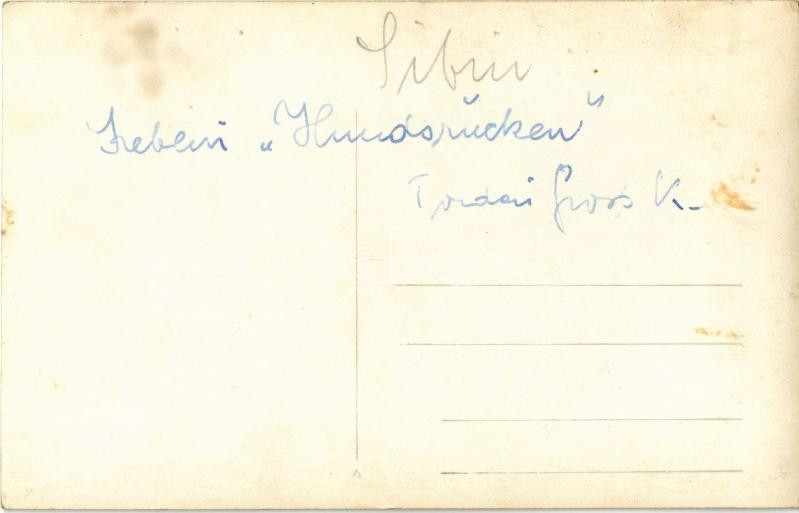 Sibiu
Szebeni „Hundsrücken"
Tordai Gross K.